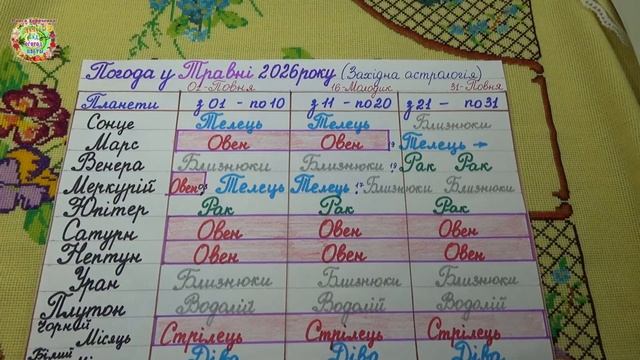 Погода у Травні 2026 року (Західна астрологія)
01-Повня 16-Молодик 31-Повня
Планети з 01 - по 10 з 11 - по 20 з 21 - по 31
Сонце Телець Телець Близнюки
Марс Овен Овен Телець
Венера Близнюки Близнюки 19 Рак Рак
Меркурій Овен 03 Телець Телець 17 Близнюки Близнюки
Юпітер Рак Рак Рак
Сатурн Овен Овен Овен
Нептун Овен Овен Овен
Уран Близнюки Близнюки Близнюки
Плутон Водолій Водолій Водолій
Чорний Місяць Стрілець Стрілець Стрілець
Білий Діва Діва Діва